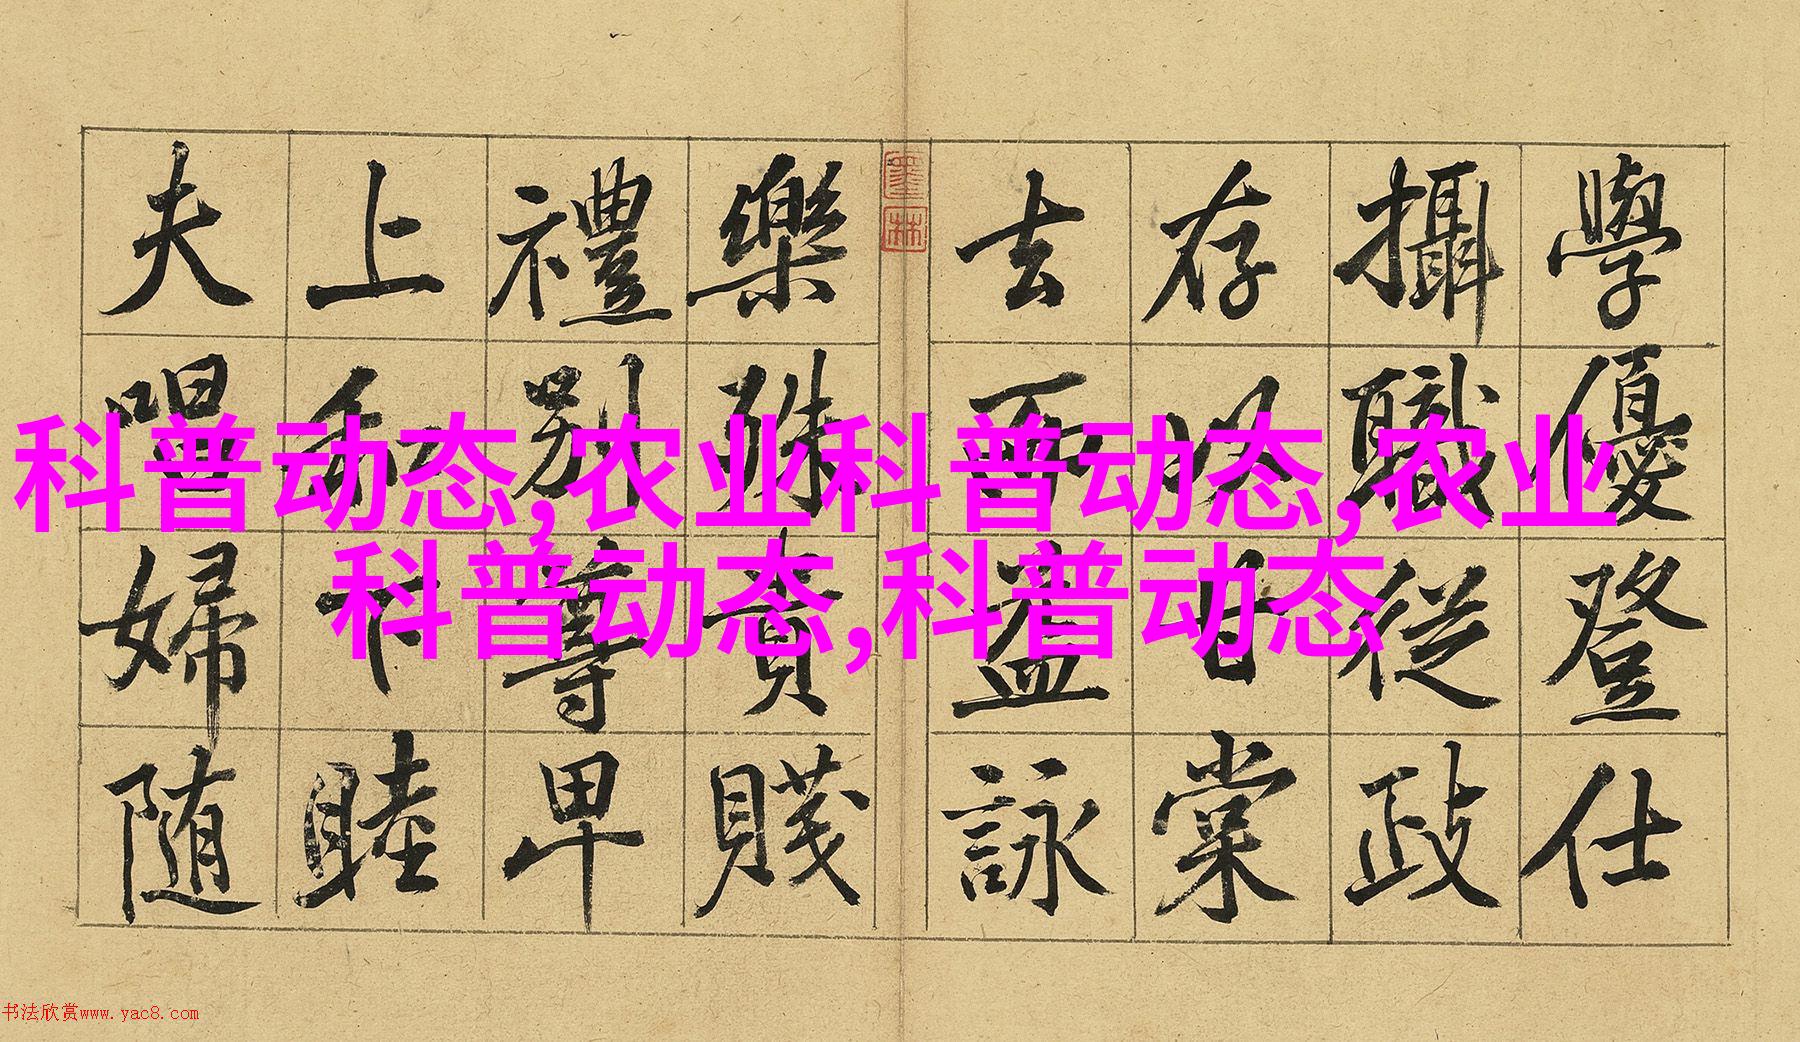 學優登仕
攝職從政
存以甘棠
去而益詠
墨林
樂殊貴賤
禮別尊卑
上和下睦
夫唱婦随
科普动态,农业科普动态,农业
科普动态,科普动态
书法欣赏www.yac8.com